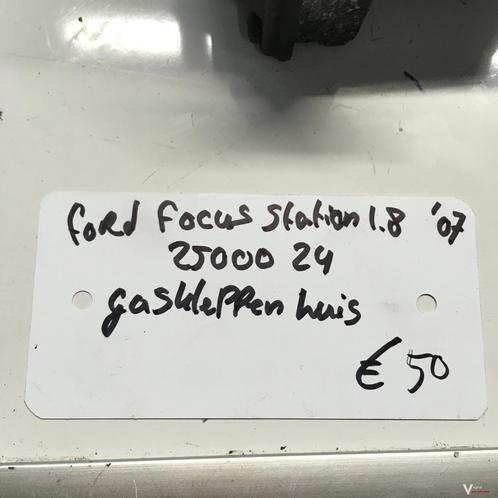 Ford Focus Station 1.8 '07
2500024
gaskleppenhuis
€ 50